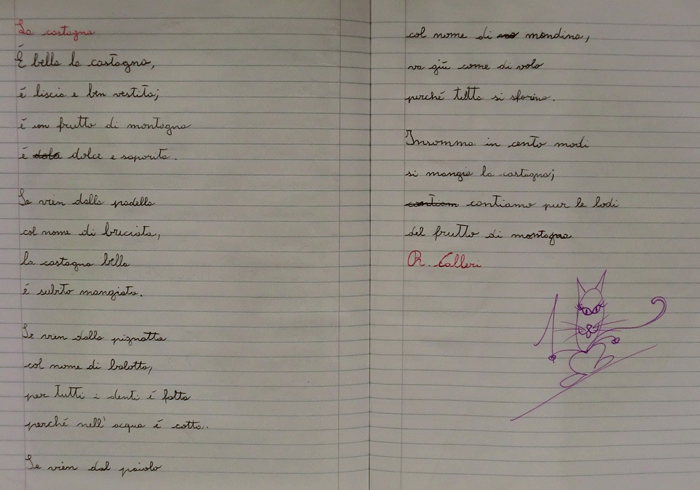 La castagna
È bella la castagna,
è liscia e ben vestita;
è un frutto di montagna
è dolce e saporita.
Se vien dalla padella
col nome di bruciata,
la castagna bella
è subito mangiata.
Se vien dalla pignatta
col nome di balotta,
per tutti i denti è fatta
perché nell'acqua è cotta.
Se vien dal paiolo
col nome di mondina,
va giù come di volo
perché tutta si sfarina.
Insomma in cento modi
si mangia la castagna;
contiamo pur le lodi
del frutto di montagna
R. Calleri